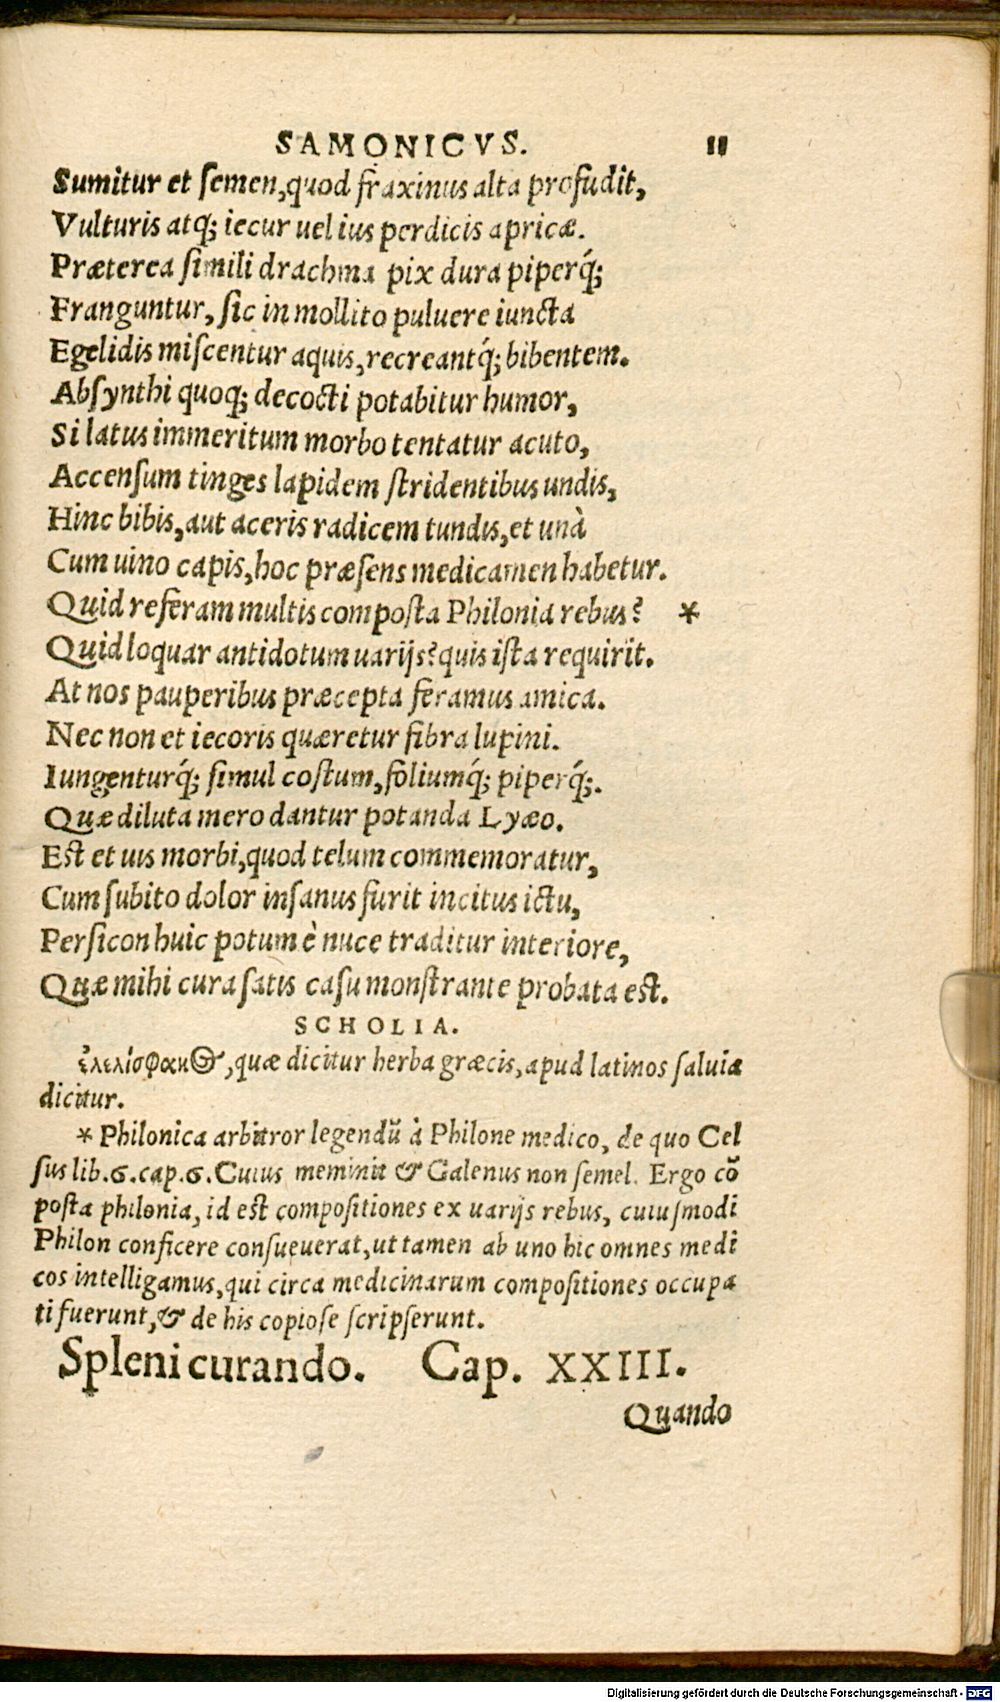 SAMONICVS. 11
Sumitur et ſemen,quod fraxinus alta profudit,
Vulturis atq́; iecur uel ius perdicis apricæ.
Præterea ſimili drachma pix dura piperq́;
Franguntur, ſic in mollito puluere iuncta
Egelidis miſcentur aquis,recreantq́; bibentem.
Abſynthi quoq; decocti potabitur humor,
Si latus immeritum morbo tentatur acuto,
Accenſum tinges lapidem ſtridentibus undis,
Hinc bibis,aut aceris radicem tundis,et unà
Cum uino capis,hoc præſens medicamen habetur.
Quid referam multis compoſta Philonia rebus? *
Quid loquar antidotum uarijs?quis iſta requirit.
At nos pauperibus præcepta feramus amica.
Nec non et iecoris quæretur fibra lupini.
Iungenturq́; ſimul coſtum,foliumq́; piperq́;.
Quæ diluta mero dantur potanda Lyæo.
Eſt et uis morbi,quod telum commemoratur,
Cum ſubito dolor inſanus furit incitus ictu,
Perſicon huic potum è nuce traditur interiore,
Quæ mihi cura ſatis caſu monſtrante probata eſt.
SCHOLIA.
ἐλελίσφακος,quæ dicitur herba græcis,apud latinos ſaluia
dicitur.
* Philonica arbitror legendū à Philone medico, de quo Cel
ſus lib.6.cap.6.Cuius meminit & Galenus non ſemel. Ergo cō
poſta philonia, id eſt compoſitiones ex uarijs rebus, cuiuſmodi
Philon conficere conſueuerat,ut tamen ab uno hic omnes medi
cos intelligamus,qui circa medicinarum compoſitiones occupa
ti fuerunt,& de his copioſe ſcripſerunt.
Spleni curando. Cap. XXIII.
Quando
Digitalisierung gefördert durch die Deutsche Forschungsgemeinschaft - DFG